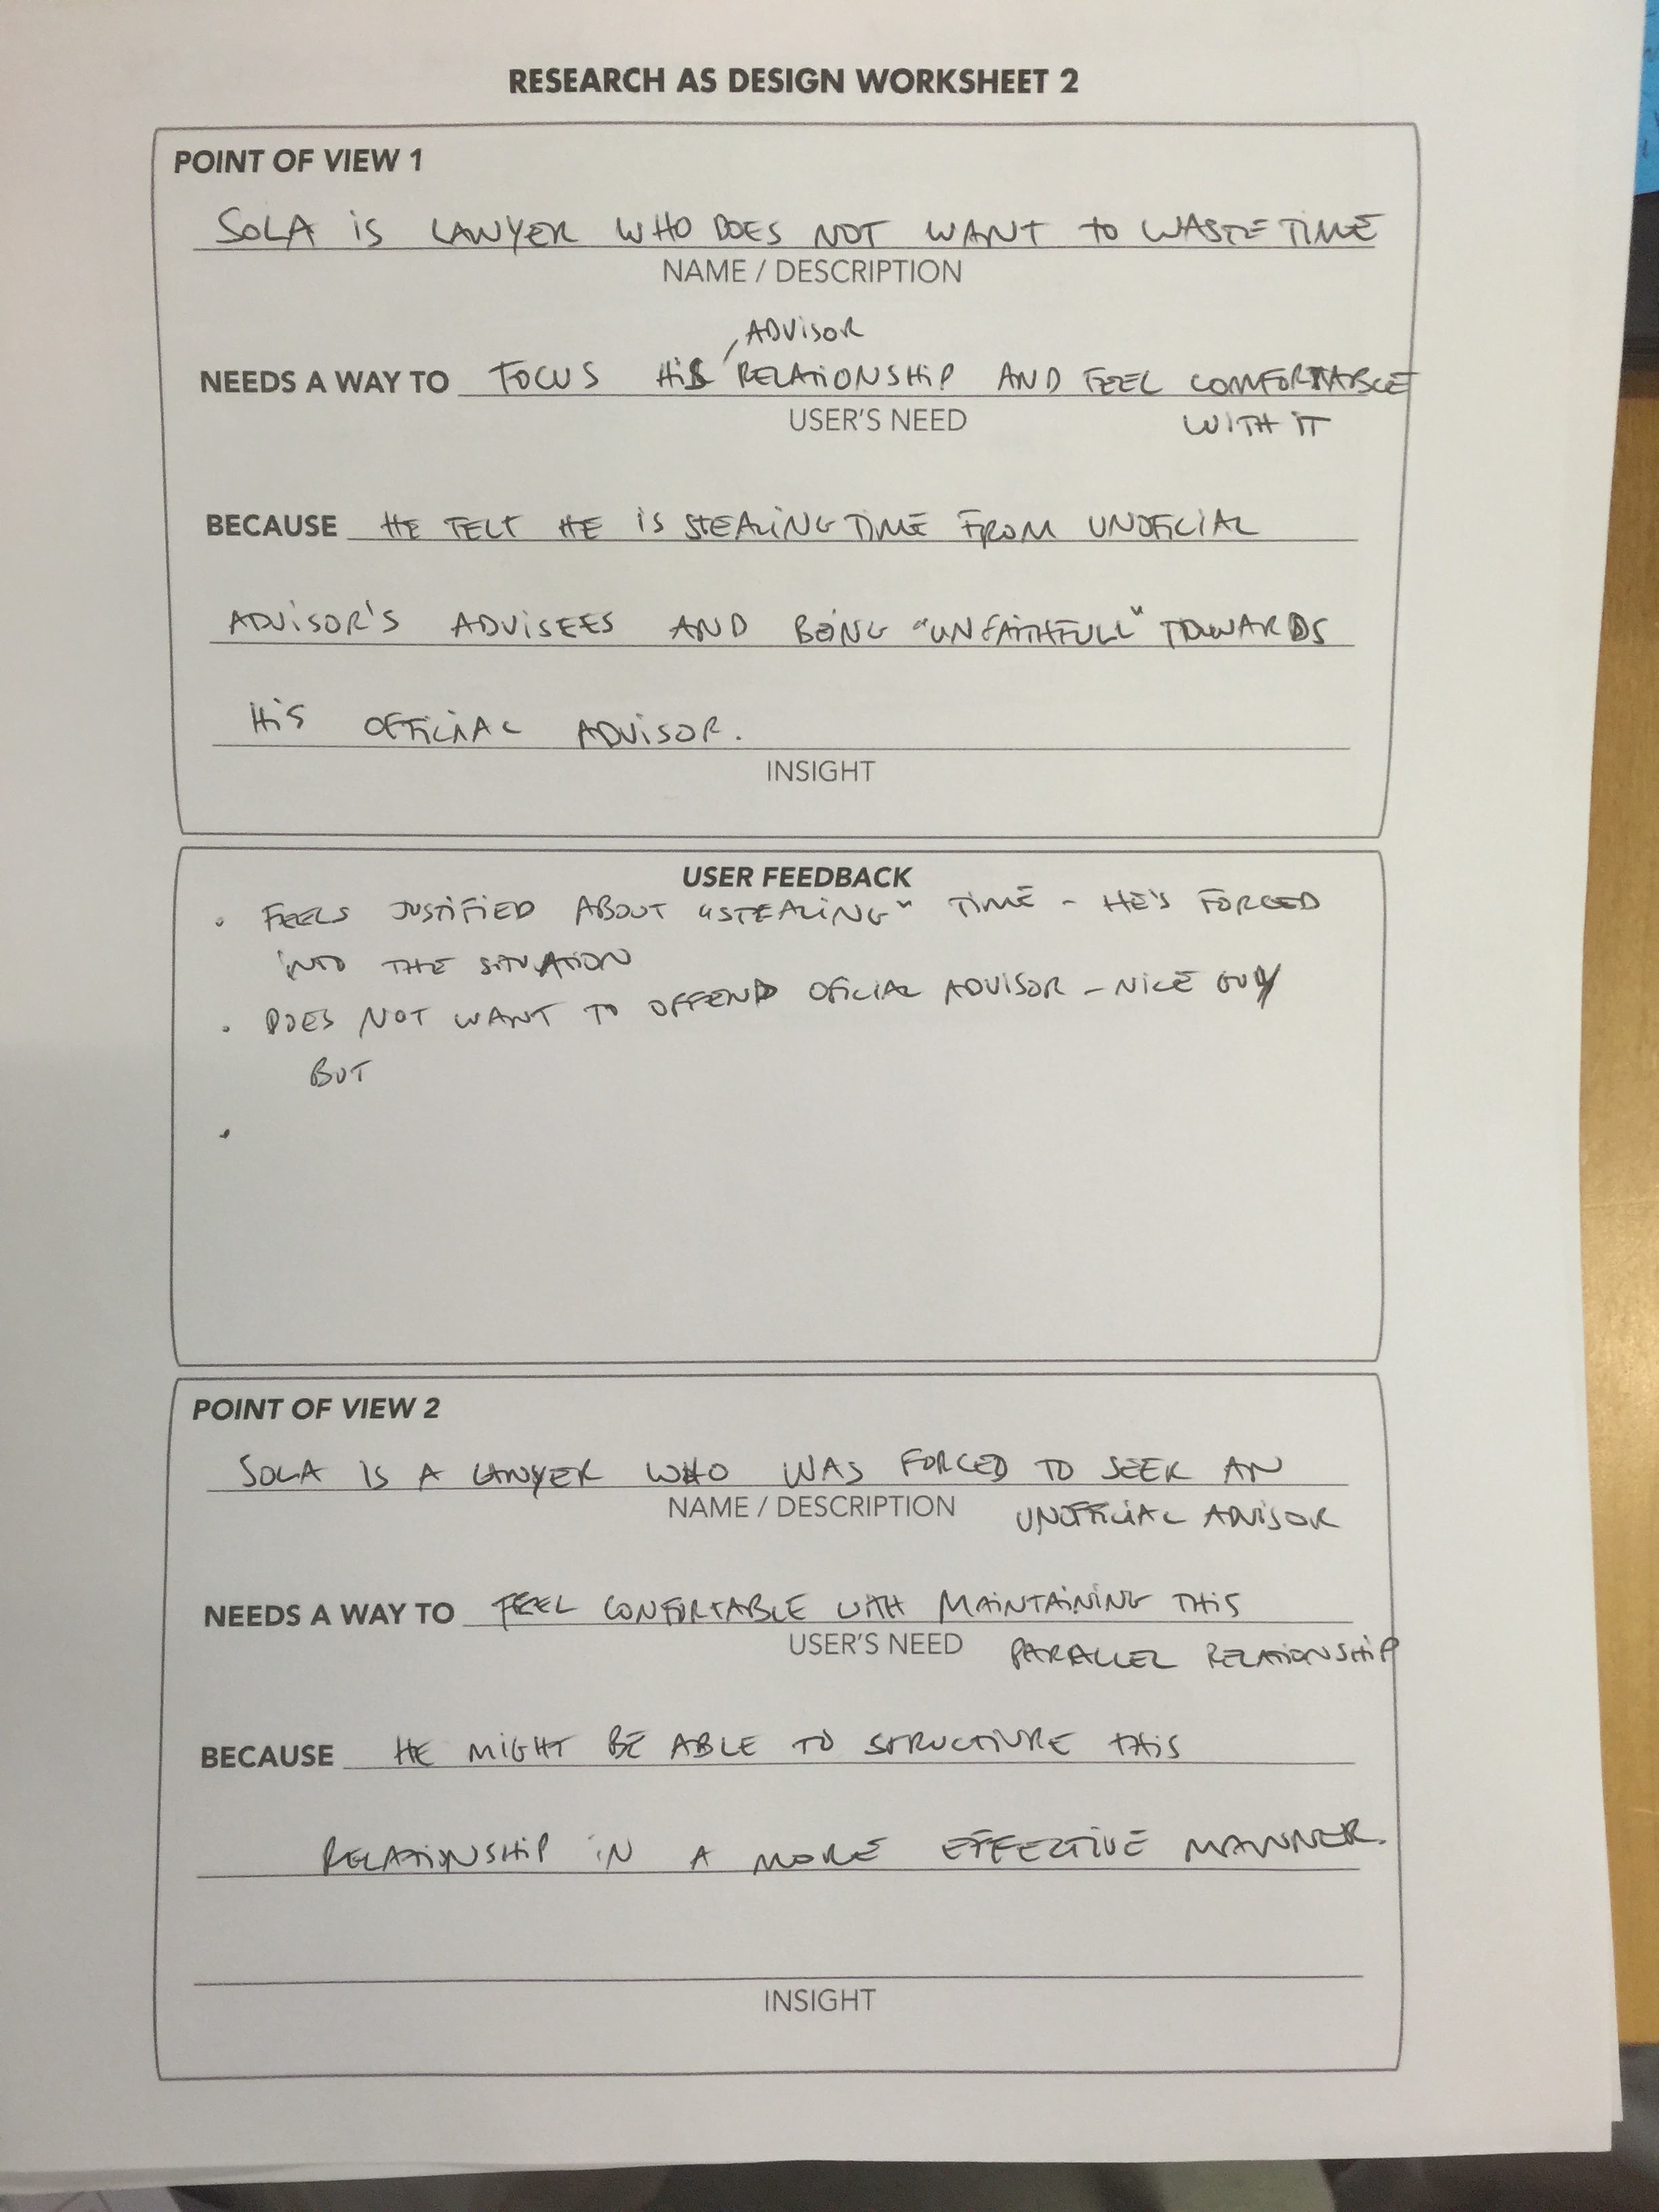 RESEARCH AS DESIGN WORKSHEET 2
POINT OF VIEW 1
SOLA IS LAWYER WHO DOES NOT WANT TO WASTE TIME
NAME / DESCRIPTION
ADVISOR
NEEDS A WAY TO FOCUS HIS RELATIONSHIP AND FEEL COMFORTABLE
USER'S NEED WITH IT
BECAUSE HE FELT HE IS STEALING TIME FROM UNOFICIAL
ADVISOR'S ADVISEES AND BEING "UNFAITHFULL" TOWARDS
HIS OFFICIAL ADVISOR.
INSIGHT
USER FEEDBACK
• FEELS JUSTIFIED ABOUT "STEALING" TIME - HE'S FORCED
INTO THE SITUATION
• DOES NOT WANT TO OFFEND OFICIAL ADVISOR - NICE GUY
BUT
•
POINT OF VIEW 2
SOLA IS A LAWYER WHO WAS FORCED TO SEEK AN
NAME / DESCRIPTION UNOFFICIAL ADVISOR
NEEDS A WAY TO FEEL CONFORTABLE WITH MAINTAINING THIS
USER'S NEED PARALLEL RELATIONSHIP
BECAUSE HE MIGHT BE ABLE TO STRUCTURE THIS
RELATIONSHIP IN A MORE EFFECTIVE MANNER.
INSIGHT